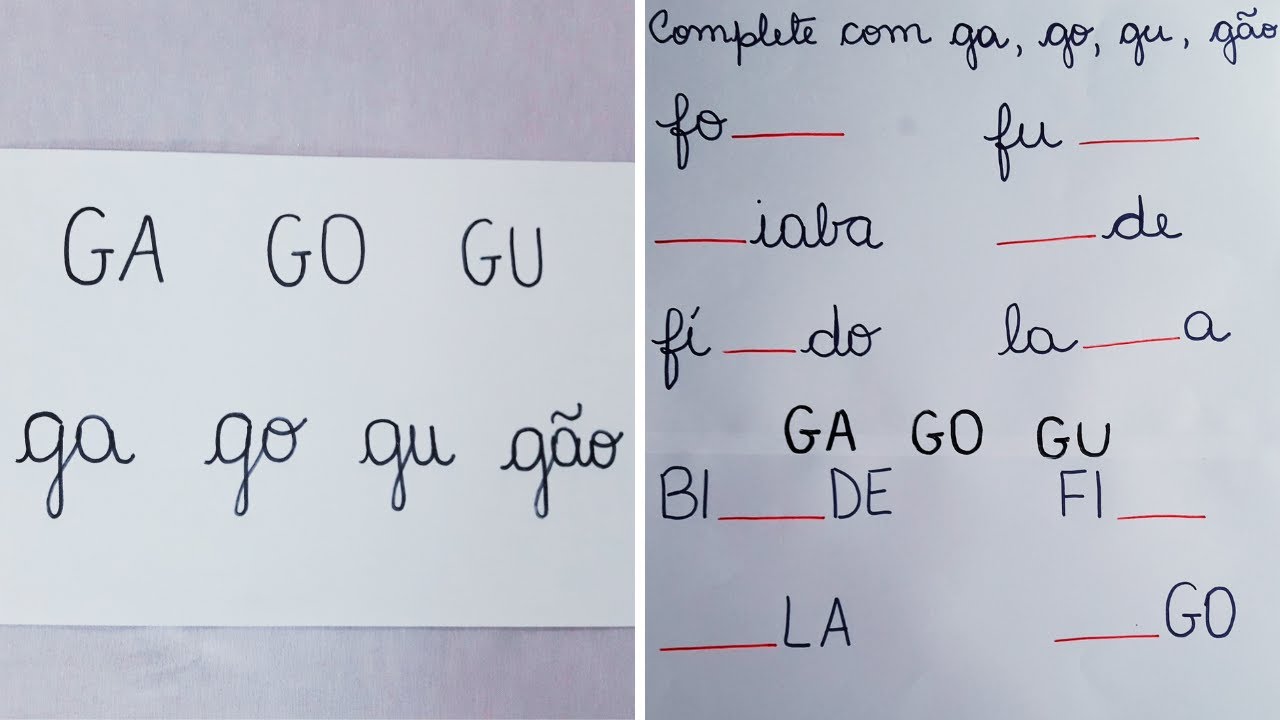 GA GO GU
ga go gu gão
Complete com ga, go, gu, gão
fo____ fu____
____iaba ____de
fí____do la____a
GA GO GU
BI____DE FI____
____LA ____GO